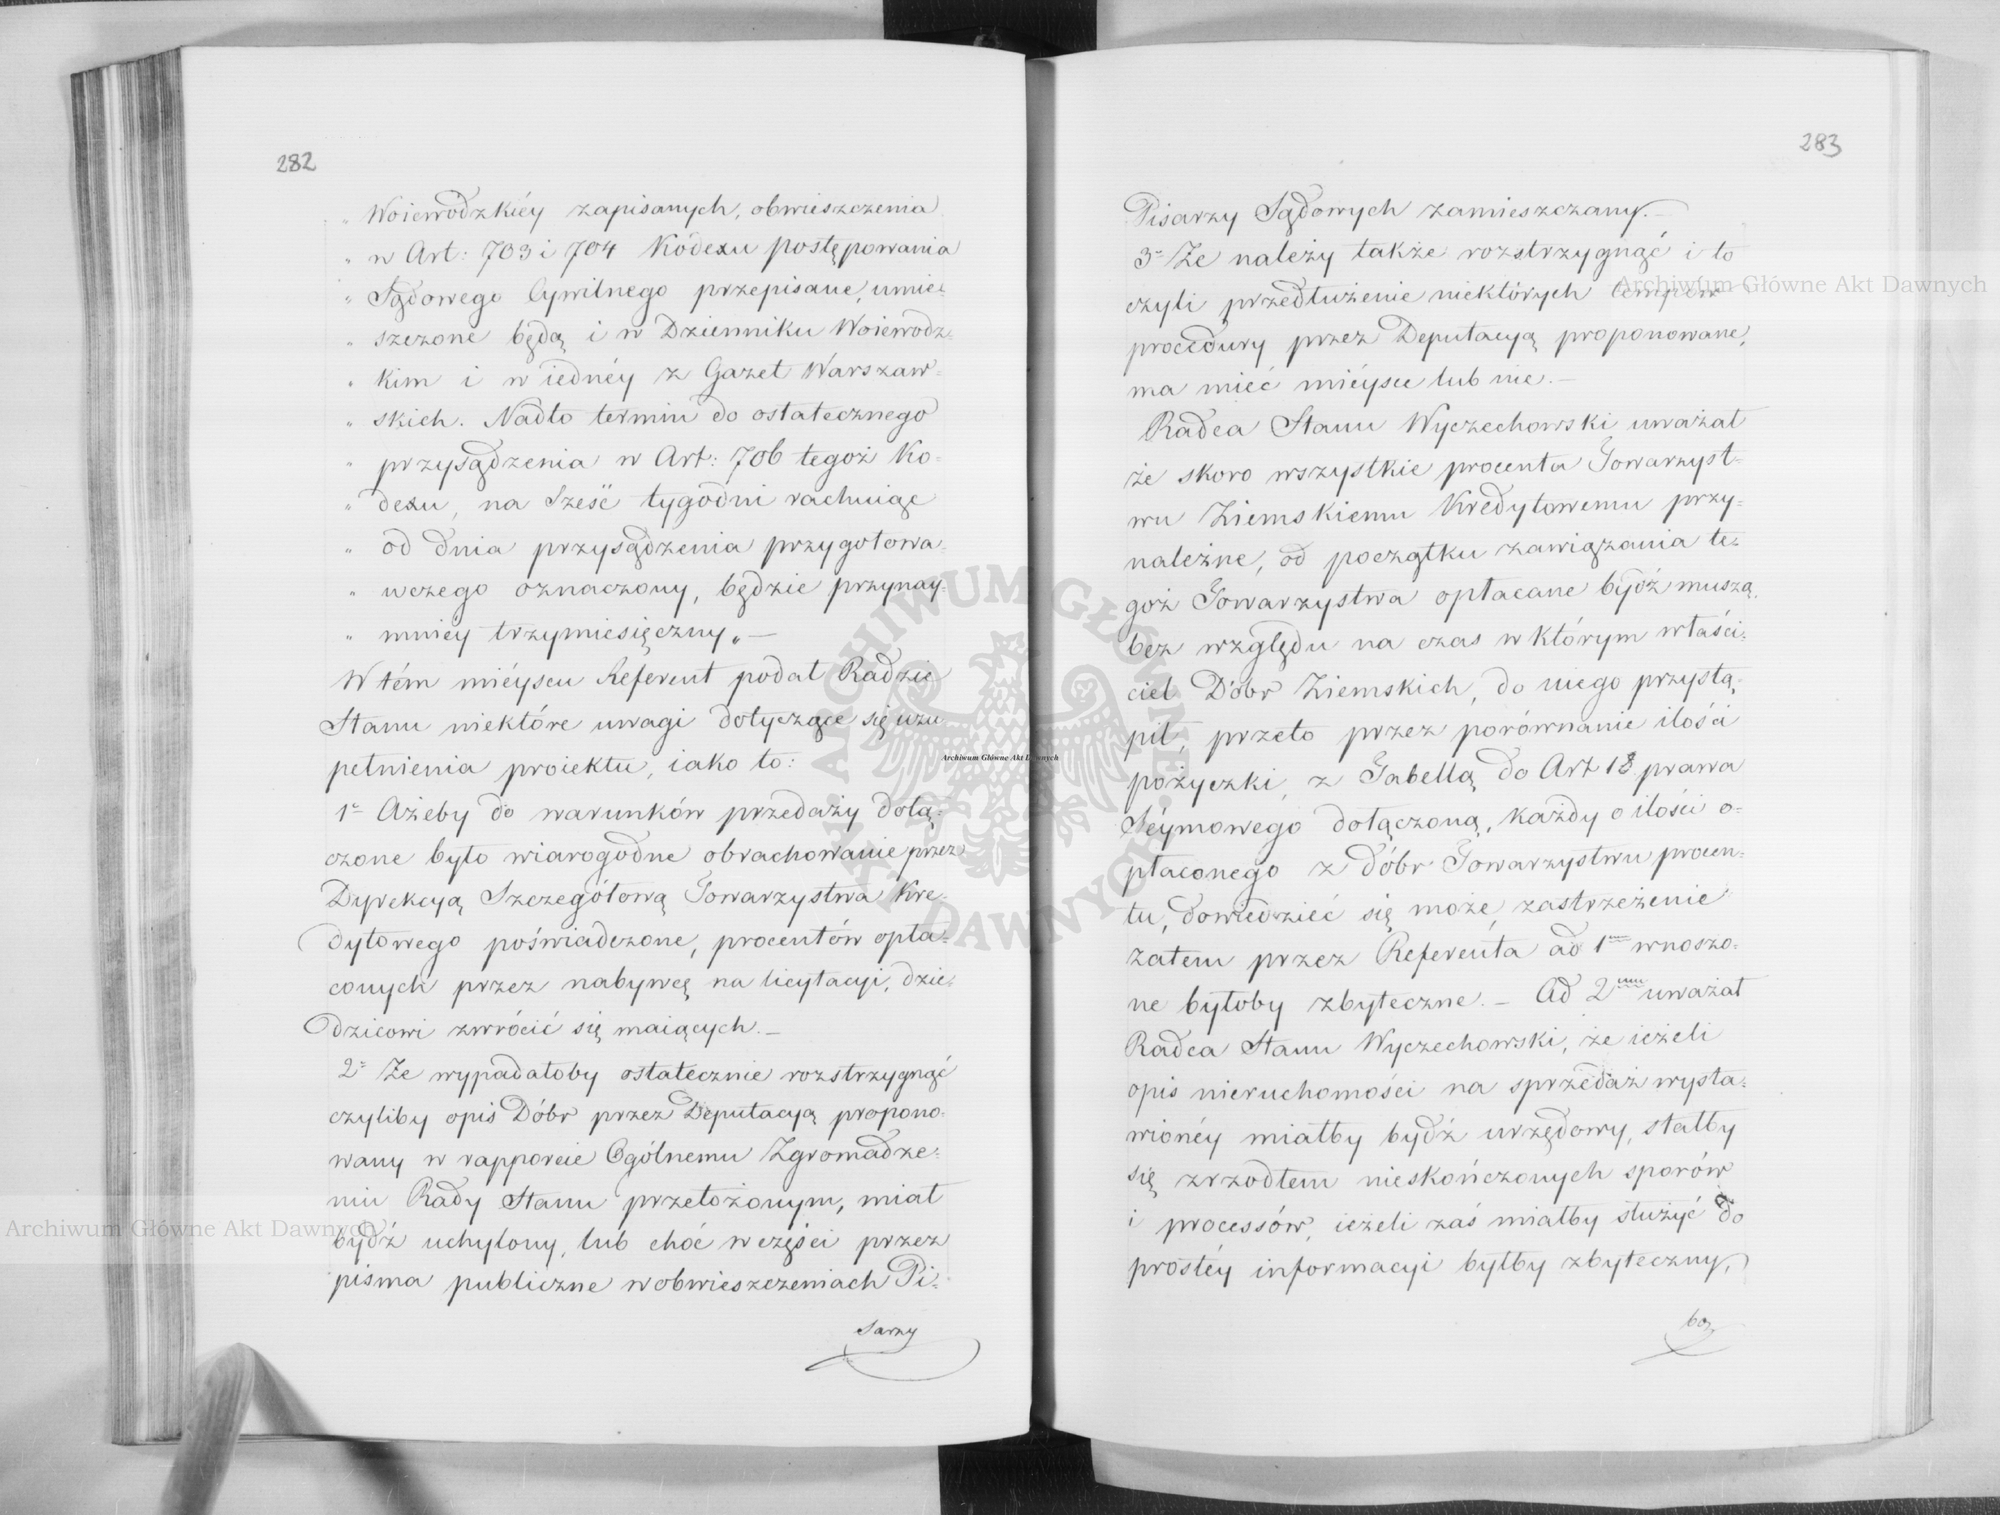 282
„ Woiewodzkiéy zapisanych, obwieszczenia
„ w Art: 703 i 704 Kodexu postępowania
„ Sądowego Cywilnego przepisane, umie-
„ szczone będą i w Dzienniku Woiewodz-
„ kim i w iednéy z Gazet Warszaw-
„ skich. Nadto termin do ostatecznego
„ przysądzenia w Art: 706 tegoż Ko-
„ dexu, na sześć tygodni rachuiąc
„ od dnia przysądzenia przygotowa-
„ wczego oznaczony, będzie przynay-
„ mniey trzymiesięczny„ —
W tém miéyscu Referent podał Radzie
Stanu niektóre uwagi dotyczące się uzu
pełnienia proiektu, iako to:
1= Ażeby do warunków przedaży dołą-
czone było wiarogodne obrachowanie przez
Dyrekcyą Szczegółową Towarzystwa Kre-
dytowego poświadczone, procentów opła-
conych przez nabywcę na licytacyi, dzie-
dzicowi zwrócić się maiących. —
2= Że wypadałoby ostatecznie rozstrzygnąć
czyliby opis Dóbr przez Deputacyą propono-
wany w rapporcie Ogólnemu Zgromadze-
niu Rady Stanu przełożonym, miał
bydź uchylony, lub choć w części przez
pisma publiczne w obwieszczeniach Pi-
sarzy
283
Pisarzy Sądowych zamieszczany. —
3= Że należy także rozstrzygnąć i to
czyli przedłużenie niektórych tempów
procedury przez Deputacyą proponowane,
ma mieć miéysce lub nie. —
Radca Stanu Wyczechowski uważał
że skoro wszystkie procenta Towarzyst-
wu Ziemskiemu Kredytowemu przy-
należne, od początku zawiązania te-
goż Towarzystwa opłacane bydź muszą,
bez względu na czas w którym właści-
ciel Dóbr Ziemskich, do niego przystą-
pił, przeto przez porównanie ilości
pożyczki, z Tabellą do Art 18 prawa
Séymowego dołączoną, każdy o ilości o-
płaconego z dóbr Towarzystwu procen-
tu, dowiedzieć się może, zastrzeżenie
zatem przez Referenta ad 1mum wnoszo-
ne byłoby zbyteczne. — Ad 2mum uważał
Radca Stanu Wyczechowski, że ieżeli
opis nieruchomości na sprzedaż wysta-
wionéy miałby bydź urzędowy, stałby
się zrzodłem nieskończonych sporów
i processów, ieżeli zaś miałby służyć do
prostéy informacyi byłby zbyteczny,
bo
Archiwum Główne Akt Dawnych
Archiwum Główne Akt Dawnych
Archiwum Główne Akt Dawnych
ARCHIWUM GŁÓWNE AKT DAWNYCH